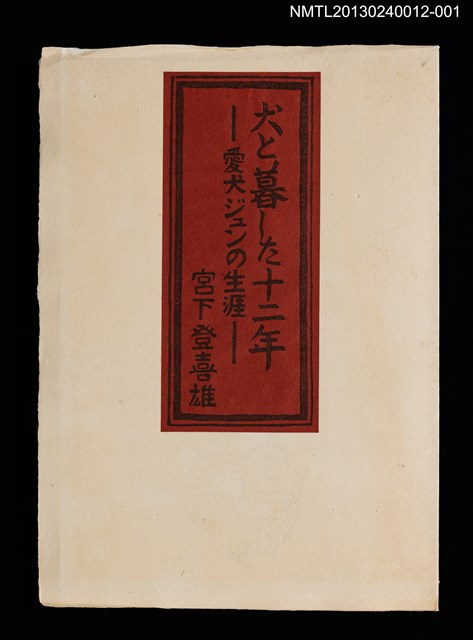 NMTL20130240012-001
犬と暮した十二年
―愛犬ジュンの生涯―
宮下登喜雄